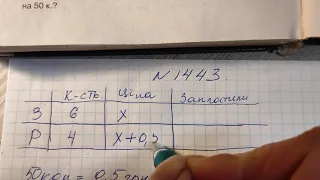 на 50 к.?
№ 1443.
К-сть Ціна Заплатили
З 6 x
Р 4 x+0,5
50коп = 0,5 грн